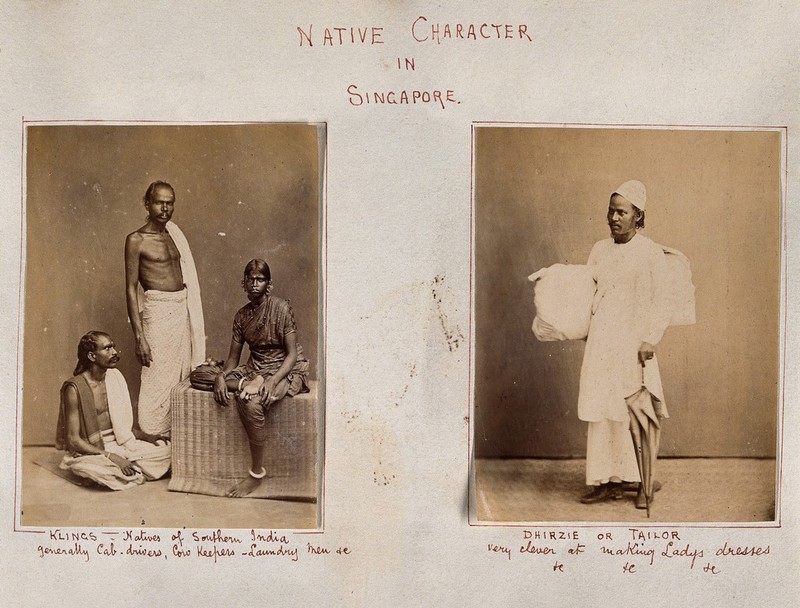 NATIVE CHARACTER
IN
SINGAPORE.
KLINGS — Natives of Southern India
generally Cab-drivers, Cow Keepers - Laundry Men &c
DHIRZIE OR TAILOR
very clever at making Ladys dresses
&c &c &c